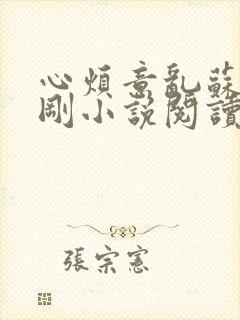 心煩意亂蘇
剛小說閱讀
張宗憲